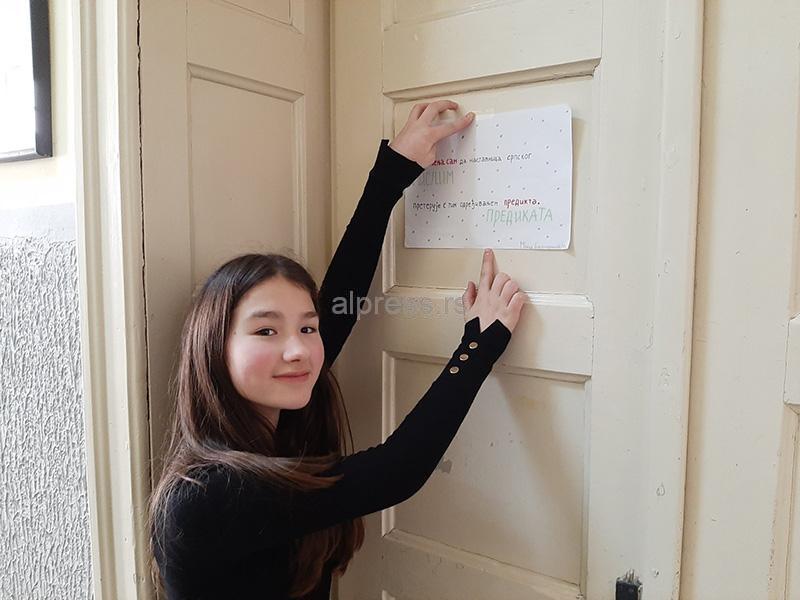 сам да наставница српског
МИСЛИМ
претерује с тим одређивањем предикта.
ПРЕДИКАТА
alpress.rs